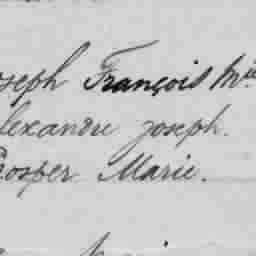 oseph François M
lexandre joseph.
Prosper Marie.